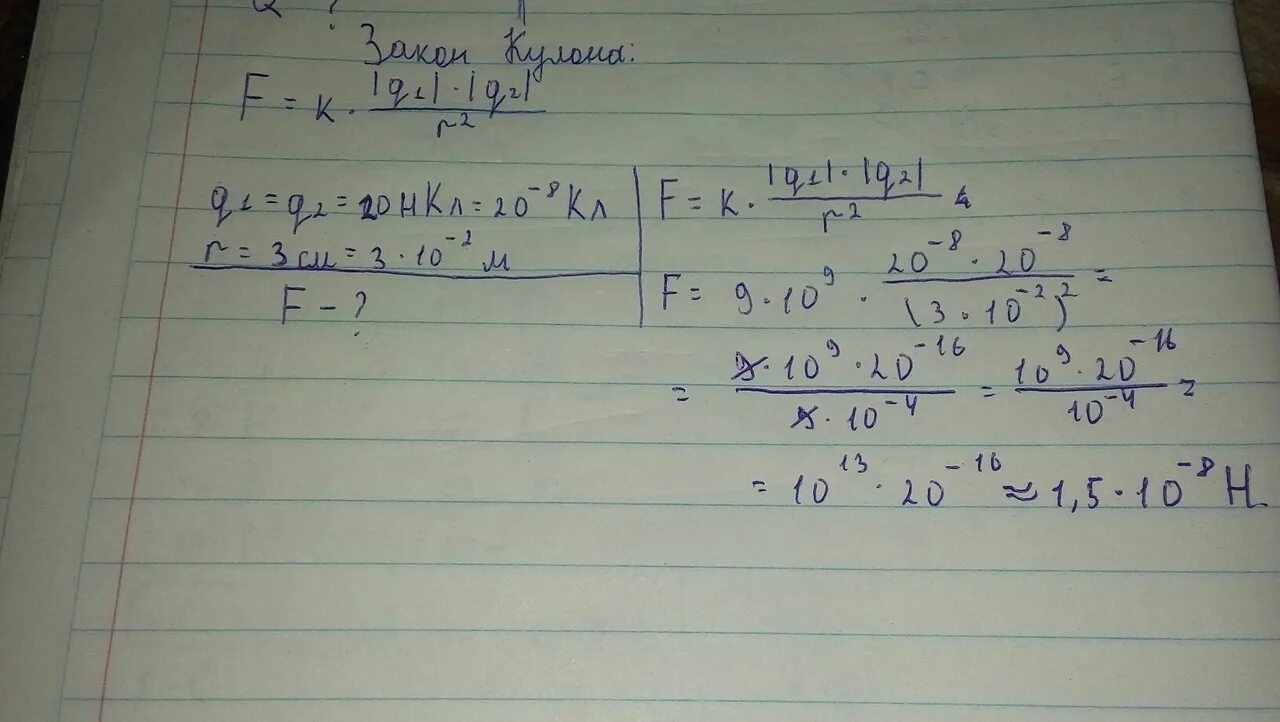 Закон Кулона:
F = к · |q₁| · |q₂| / r²
q₁ = q₂ = 20 нКл = 20⁻⁸ Кл
r = 3 см = 3 · 10⁻² м
F - ?
F = к · |q₁| · |q₂| / r²
F = 9 · 10⁹ · 20⁻⁸ · 20⁻⁸ / (3 · 10⁻²)² =
= 9 · 10⁹ · 20⁻¹⁶ / 9 · 10⁻⁴ = 10⁹ · 20⁻¹⁶ / 10⁻⁴ =
= 10¹³ · 20⁻¹⁶ ≈ 1,5 · 10⁻⁸ Н